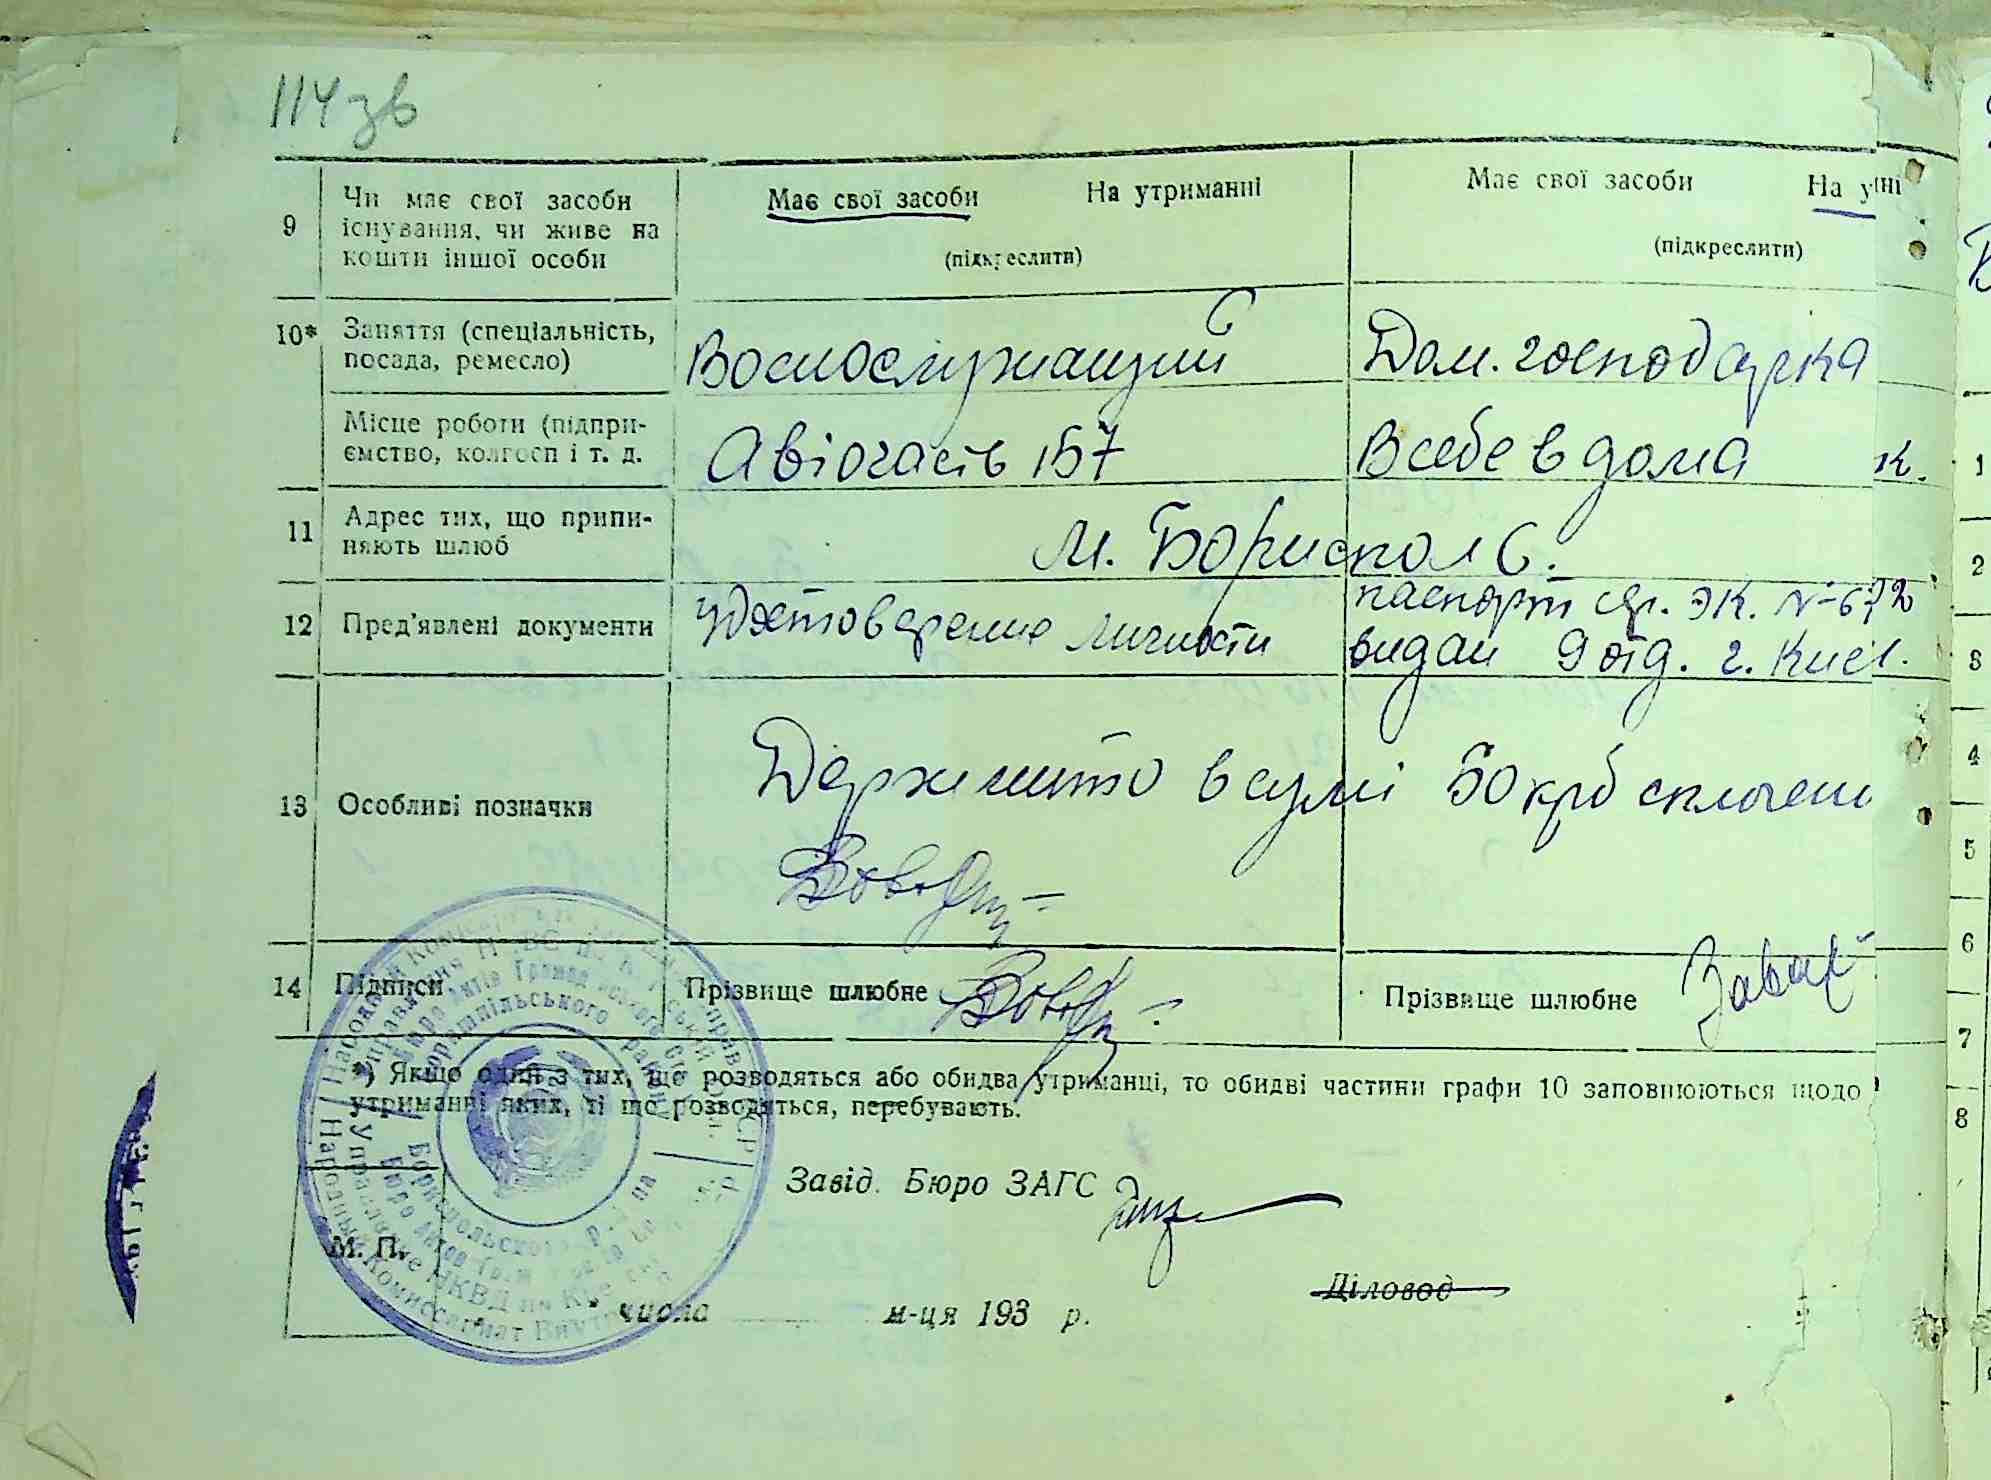 114 зв
9 Чи має свої засоби існування, чи живе на кошти іншої особи
Має свої засоби На утриманні
(підкреслити)
Має свої засоби На у
(підкреслити)
10* Заняття (спеціальність, посада, ремесло)
Воєнослужащий
Дом. господарка
Місце роботи (підприємство, колгосп і т. д.
Авіочасть 157
В себе в дома
к.
11 Адрес тих, що припиняють шлюб
м. Бориспол Є.
12 Пред'явлені документи
удостоверение личности
паспорт сер. ЭК. № 672
видан 9 отд. г. Києв.
13 Особливі позначки
Держмито в сумі 50 крб сплочен
14 Підписи
Прізвище шлюбне
Прізвище шлюбне
*) Якщо один з тих, що розводяться або обидва утриманці, то обидві частини графи 10 заповнюються щодо
утриманні яких, ті що розводяться, перебувають.
Завід. Бюро ЗАГС
М. П.
Діловод
числа м-ця 193 р.
1
2
3
4
5
6
7
8